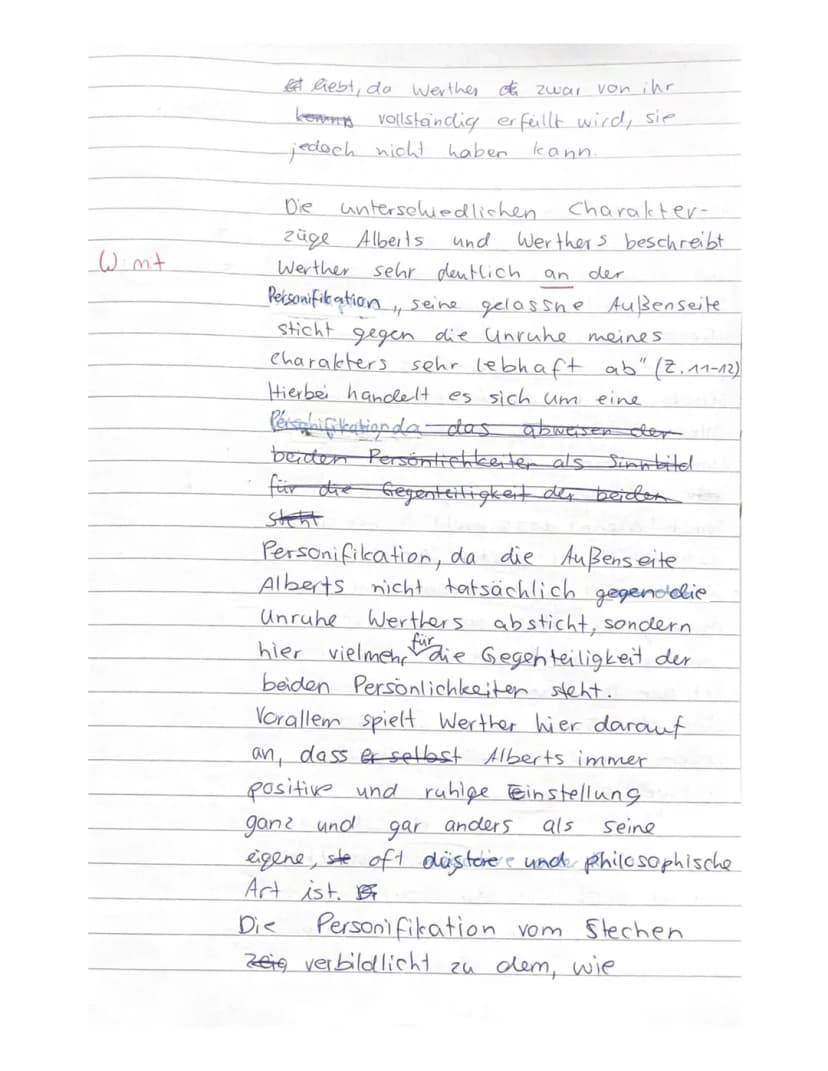 liebt, da Werther zwar von ihr
vollständig erfüllt wird, sie
jedoch nicht haben kann.
Die unterschiedlichen Charakter-
züge Alberts und Werthers beschreibt
W mit
Werther sehr deutlich an der
Personifikation „seine gelassne Außenseite
sticht gegen die Unruhe meines
Charakters sehr lebhaft ab" (Z.11-12)
Hierbei handelt es sich um eine
Personifikation da das abweisen der
beiden Persönlichkeiten als Sinnbild
für die Gegenteiligkeit der beiden
steht
Personifikation, da die Außenseite
Alberts nicht tatsächlich gegen die
Unruhe Werthers absticht, sondern
hier vielmehr für die Gegenteiligkeit der
beiden Persönlichkeiten steht.
Vorallem spielt Werther hier darauf
an, dass er selbst Alberts immer
positive und ruhige Einstellung
ganz und gar anders als seine
eigene, ste oft düstere und philosophische
Art ist.
Die Personifikation vom Stechen
zeig verbildlicht zu dem, wie